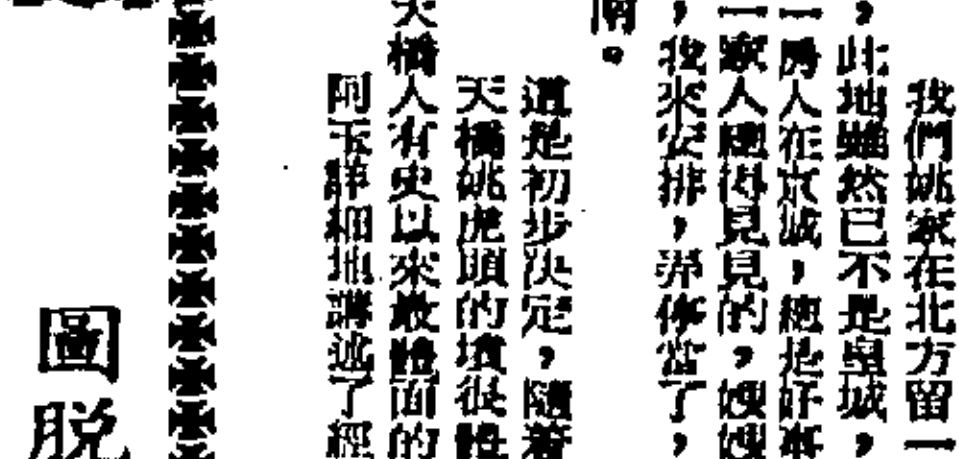 我們姚家在北方留一
，此地雖然已不是皇城，
一房人在京城，總是好事
一家人總得見見的，嫂嫂
，我來安排，弄停當了，
。
這是初步決定，隨着
天橋姚虎頭的墳很體
天橋人有史以來最體面的
阿玉詳細地講述了經
圖脫